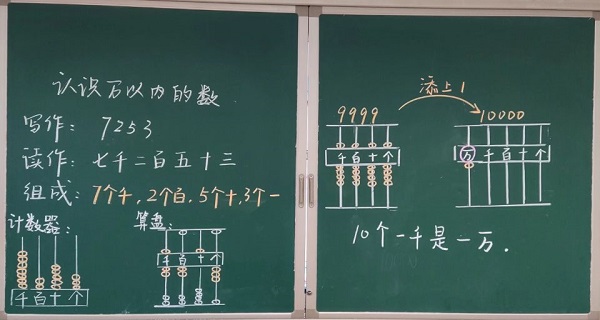 认识万以内的数
写作: 7253
读作: 七千二百五十三
组成: 7个千,2个百,5个十,3个一
计数器:
千百十个
算盘:
千百十个
添上1
9999
10000
千百十个
万千百十个
10个一千是一万.